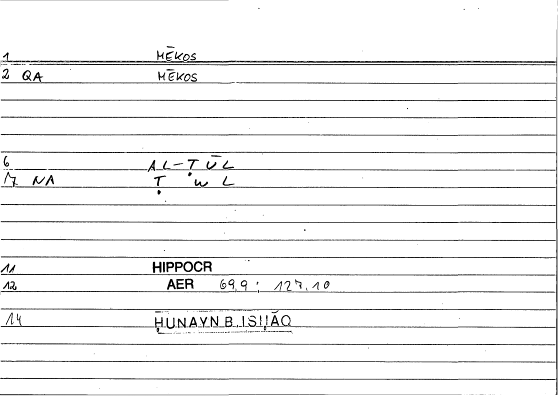 1 MĒKOS
2 QA MĒKOS
6 AL-ṬŪL
7 NA ṬWL
11 HIPPOCR
12 AER 69,9; 127,10
14 ḤUNAYN B. ISḤĀQ